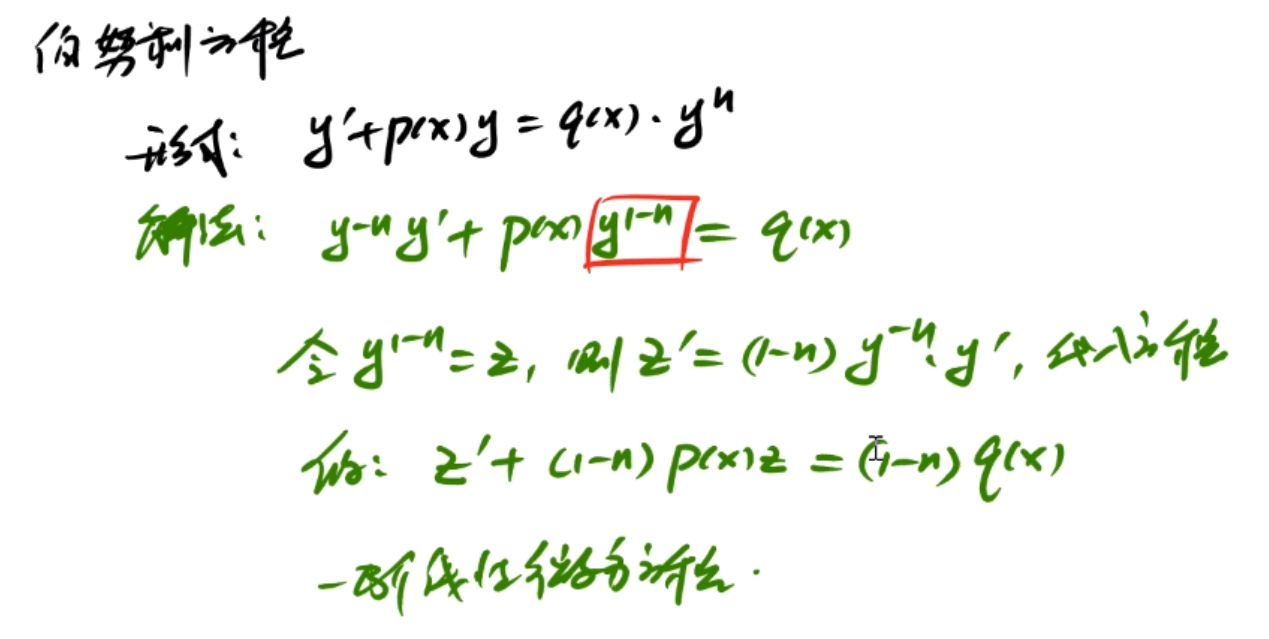 伯努利方程
形式: y′+p(x)y = q(x)·yⁿ
解法: y⁻ⁿy′+ p(x) y¹⁻ⁿ = q(x)
令 y¹⁻ⁿ = z, 则 z′ = (1-n) y⁻ⁿ·y′, 代入方程
得: z′+ (1-n) p(x)z = (1-n) q(x)
一阶线性微分方程.